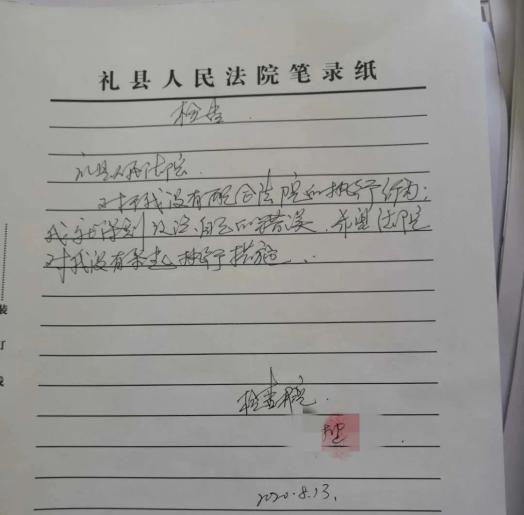 礼县人民法院笔录纸
检查
礼县人民法院
对于我没有配合法院的执行行为:
我深刻反省自己的错误,希望法院
对我没有采取执行措施
检查
2020.8.13.
装
订
线